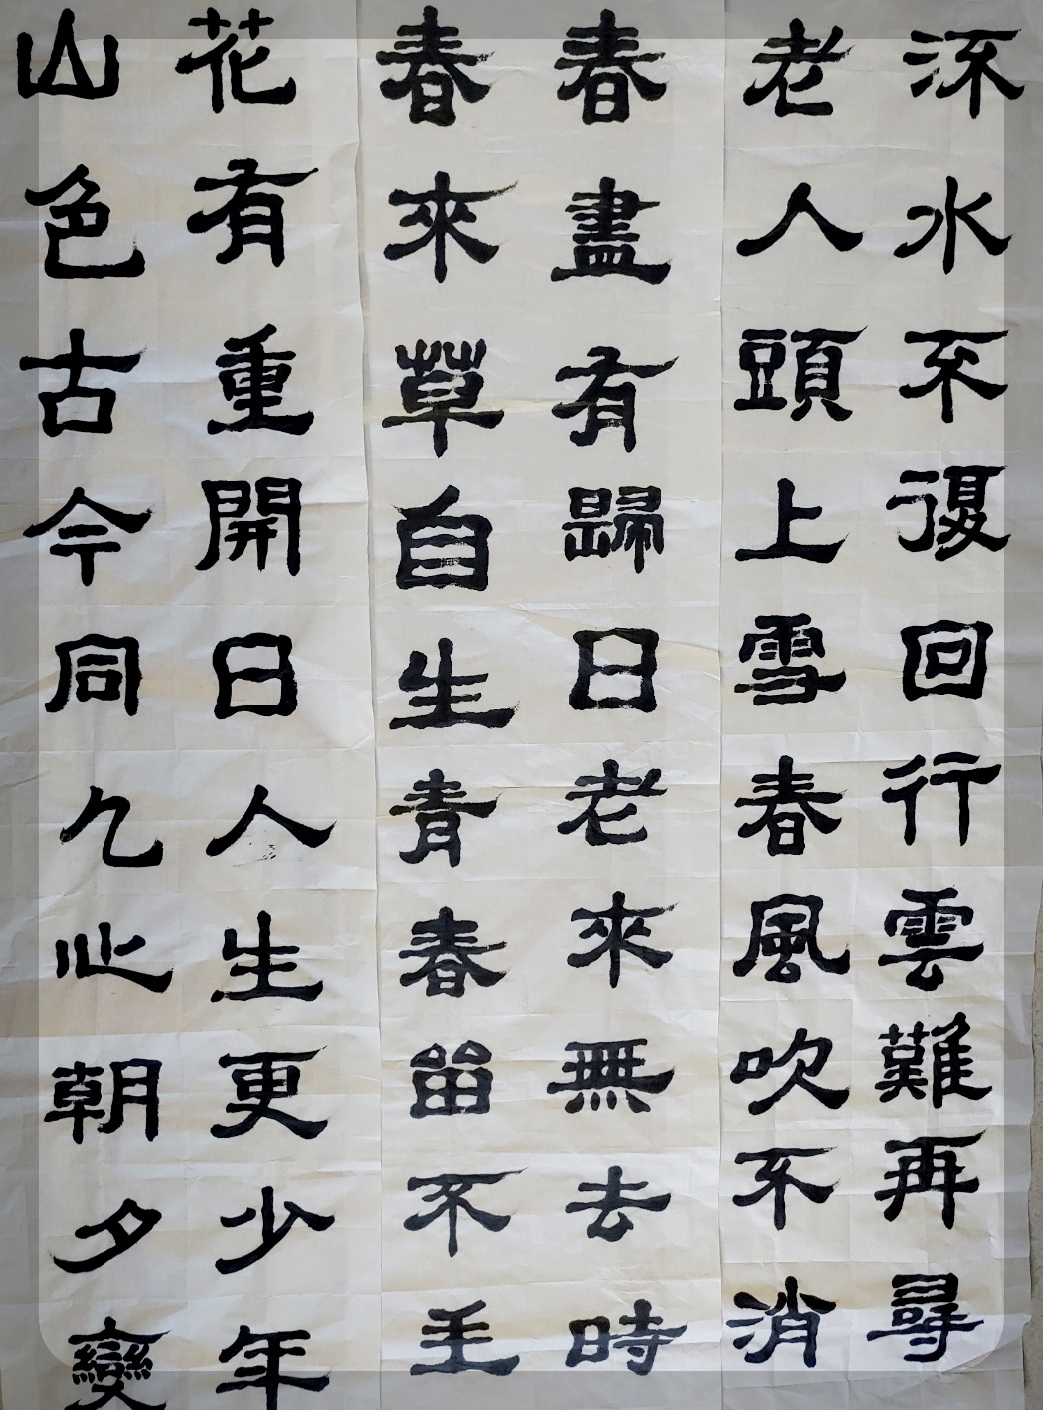 流水不復回行雲難再尋
老人頭上雪春風吹不消
春盡有歸日老來無去時
春來草自生青春留不主
花有重開日人生更少年
山色古今同心朝夕變